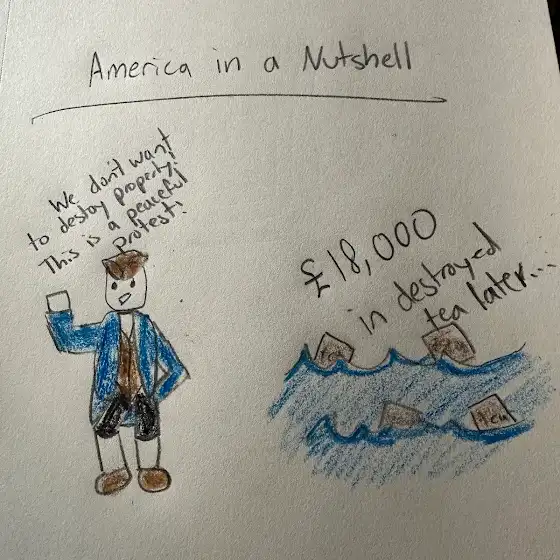 America in a Nutshell
We don't want
to destoy property!
This is a peaceful
protest!
£18,000
in destroyed
tea later...
Tea
Tea
Tea
Tea